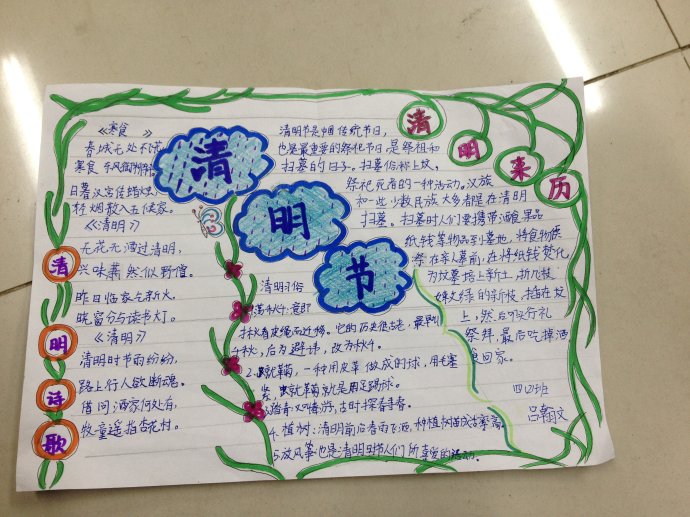 清明节
清明诗歌
《寒食》
春城无处不飞
寒食东风御柳斜
日暮汉宫传蜡烛
轻烟散入五侯家。
《清明》
无花无酒过清明,
兴味萧然似野僧。
昨日临家乞新火,
晓窗分与读书灯。
《清明》
清明时节雨纷纷,
路上行人欲断魂。
借问酒家何处有,
牧童遥指杏花村。
清明来历
清明节是 传统节日,
也是最重要的祭祀节日,是祭祖和
扫墓的日子。扫墓俗称上坟,
祭祀死者的一种活动。汉族
和一些少数民族大多都是在清明
扫墓。扫墓时人们要携带酒食果品
纸钱等物品到墓地,将食物供
祭在亲人墓前,在将纸钱焚化,
为坟墓培上新土,折几枝
嫩绿的新枝,插在坟
上,然后叩头行礼
祭拜,最后吃掉酒
食回家。
四(2)班
吕翰文
清明习俗
荡秋千:意即
揪着皮绳而迁移。它的历史很古老,最早叫
千秋,后为避讳,改为秋千。
2.蹴鞠,鞠一种用皮革做成的球,用毛塞
紧,蹴鞠就是用足踢球。
3.踏青:又叫春游,古时探春寻春。
4.植树:清明前后春雨飞洒,种植树苗成活率高。
5.放风筝:也是清明时节人们所喜爱的活动。